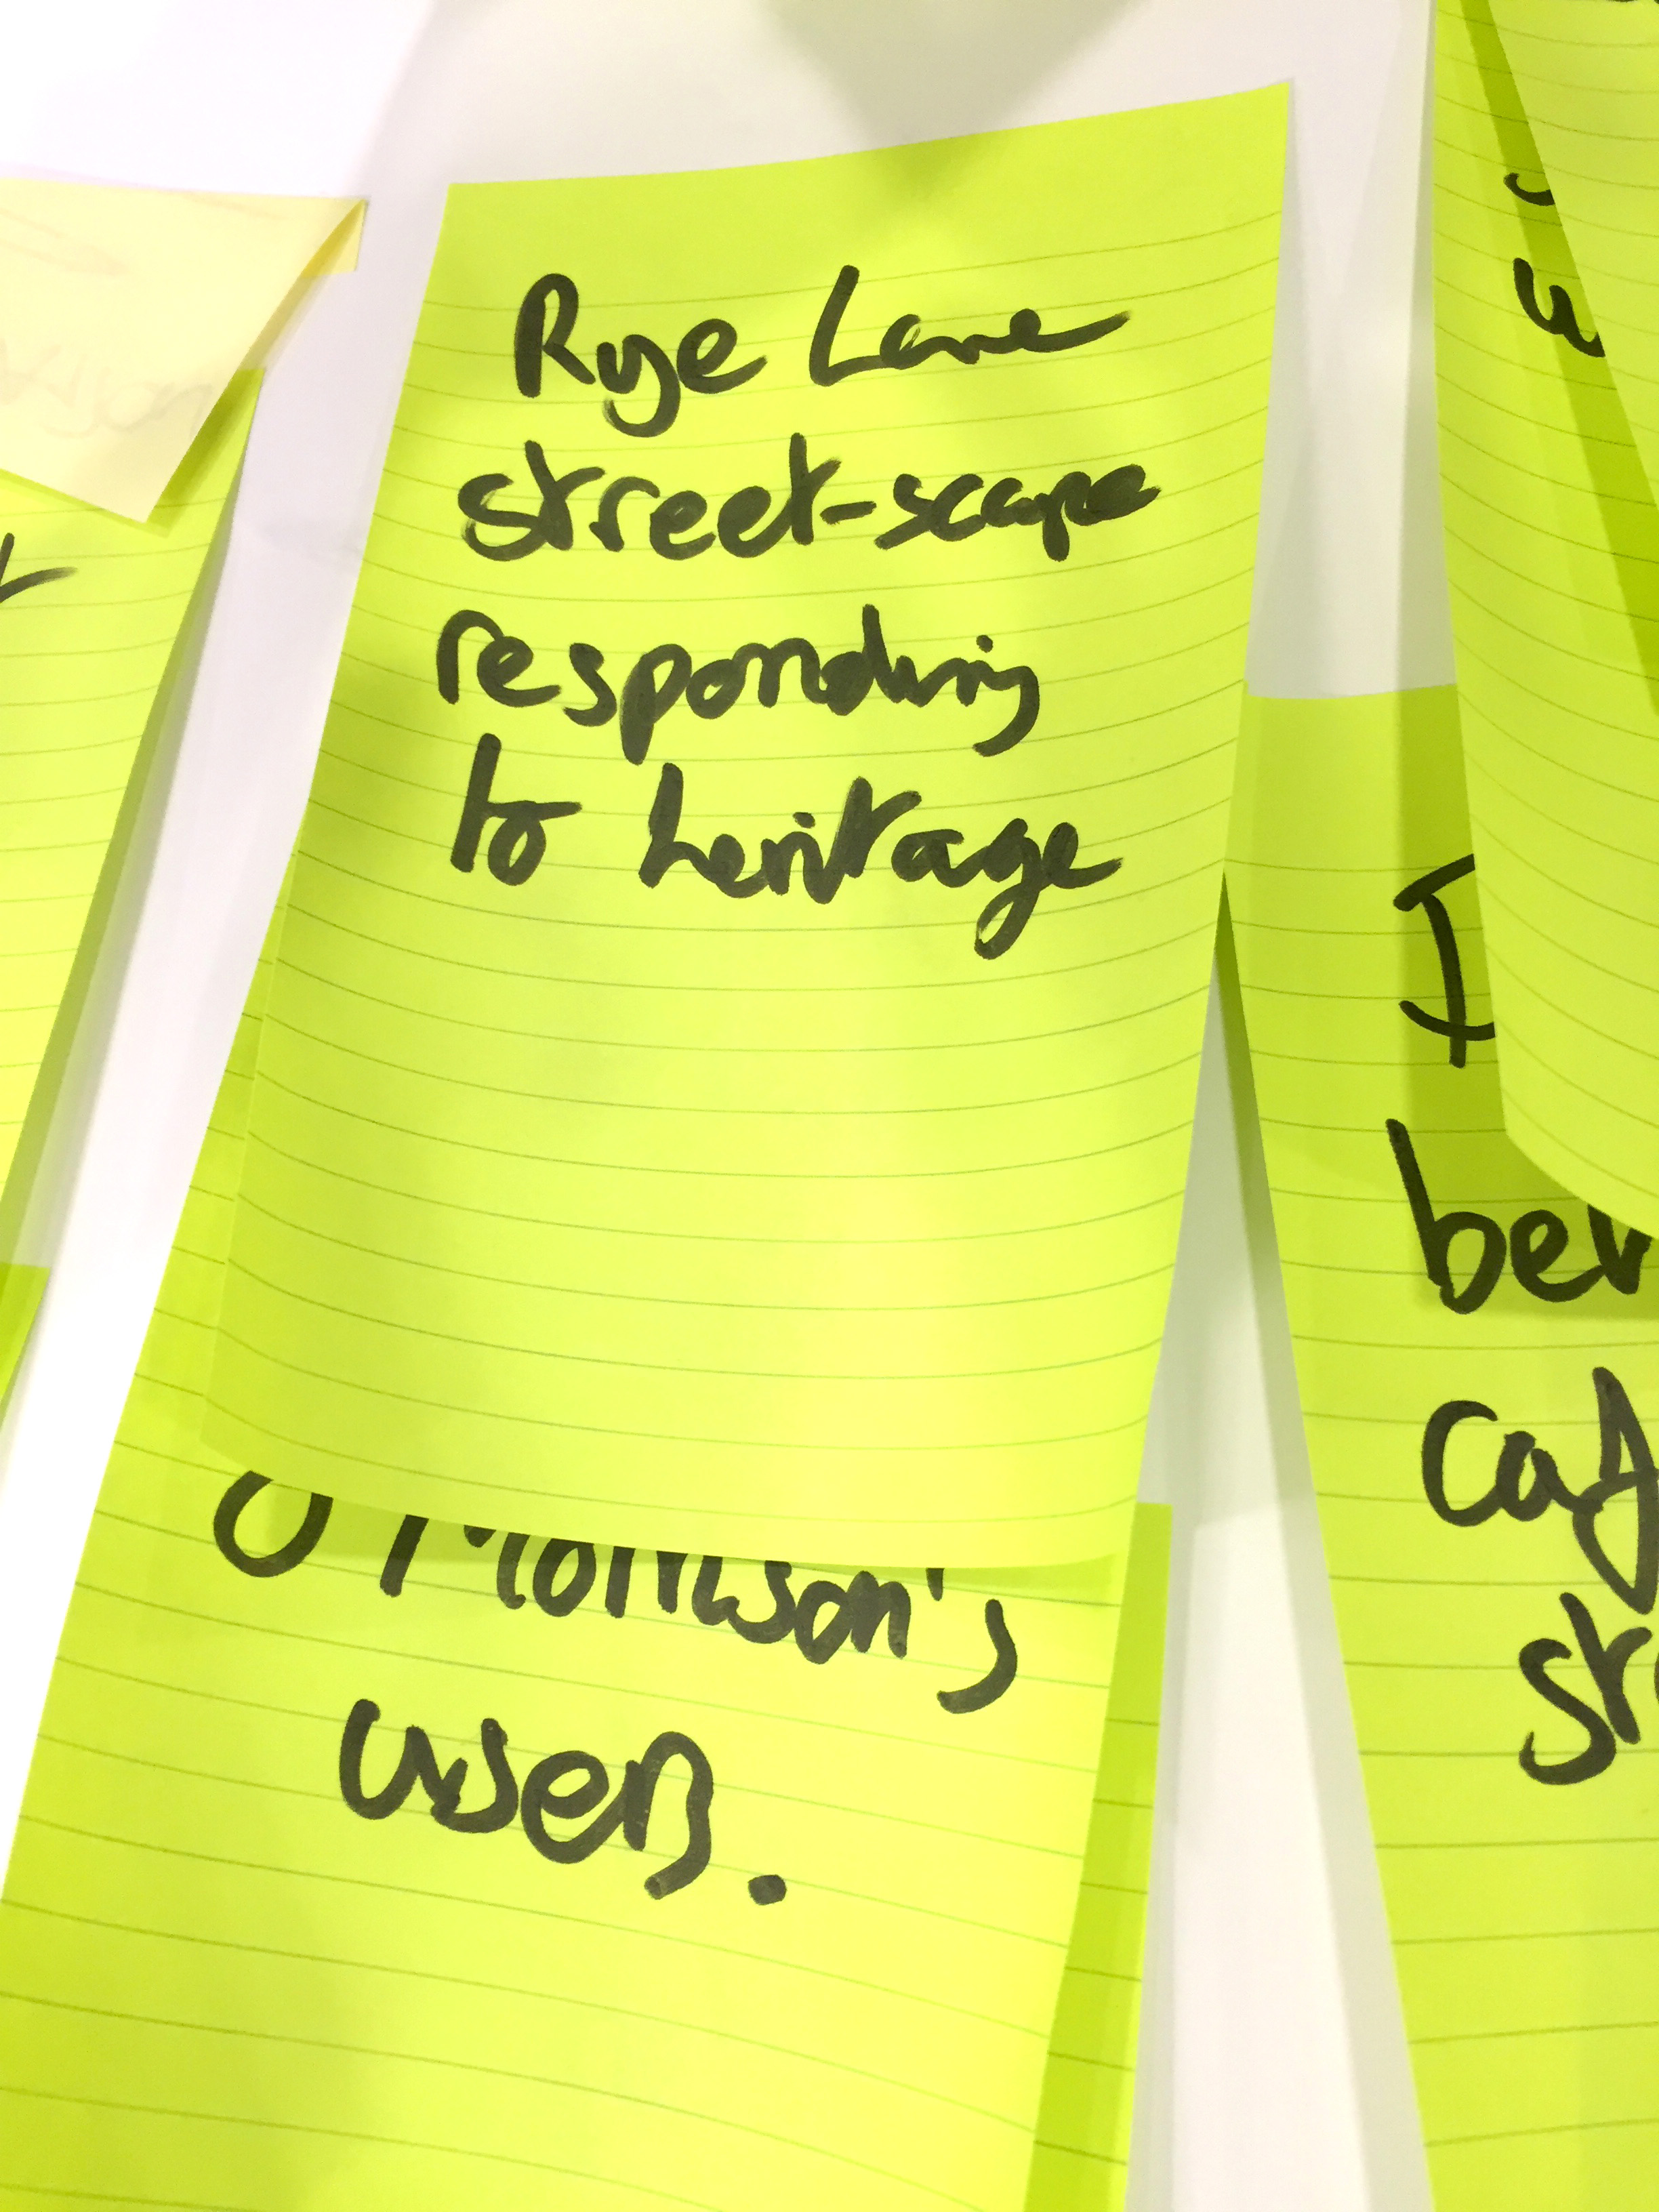 Rye Lane
street-scape
responding
to heritage
Morrison's
users.
I